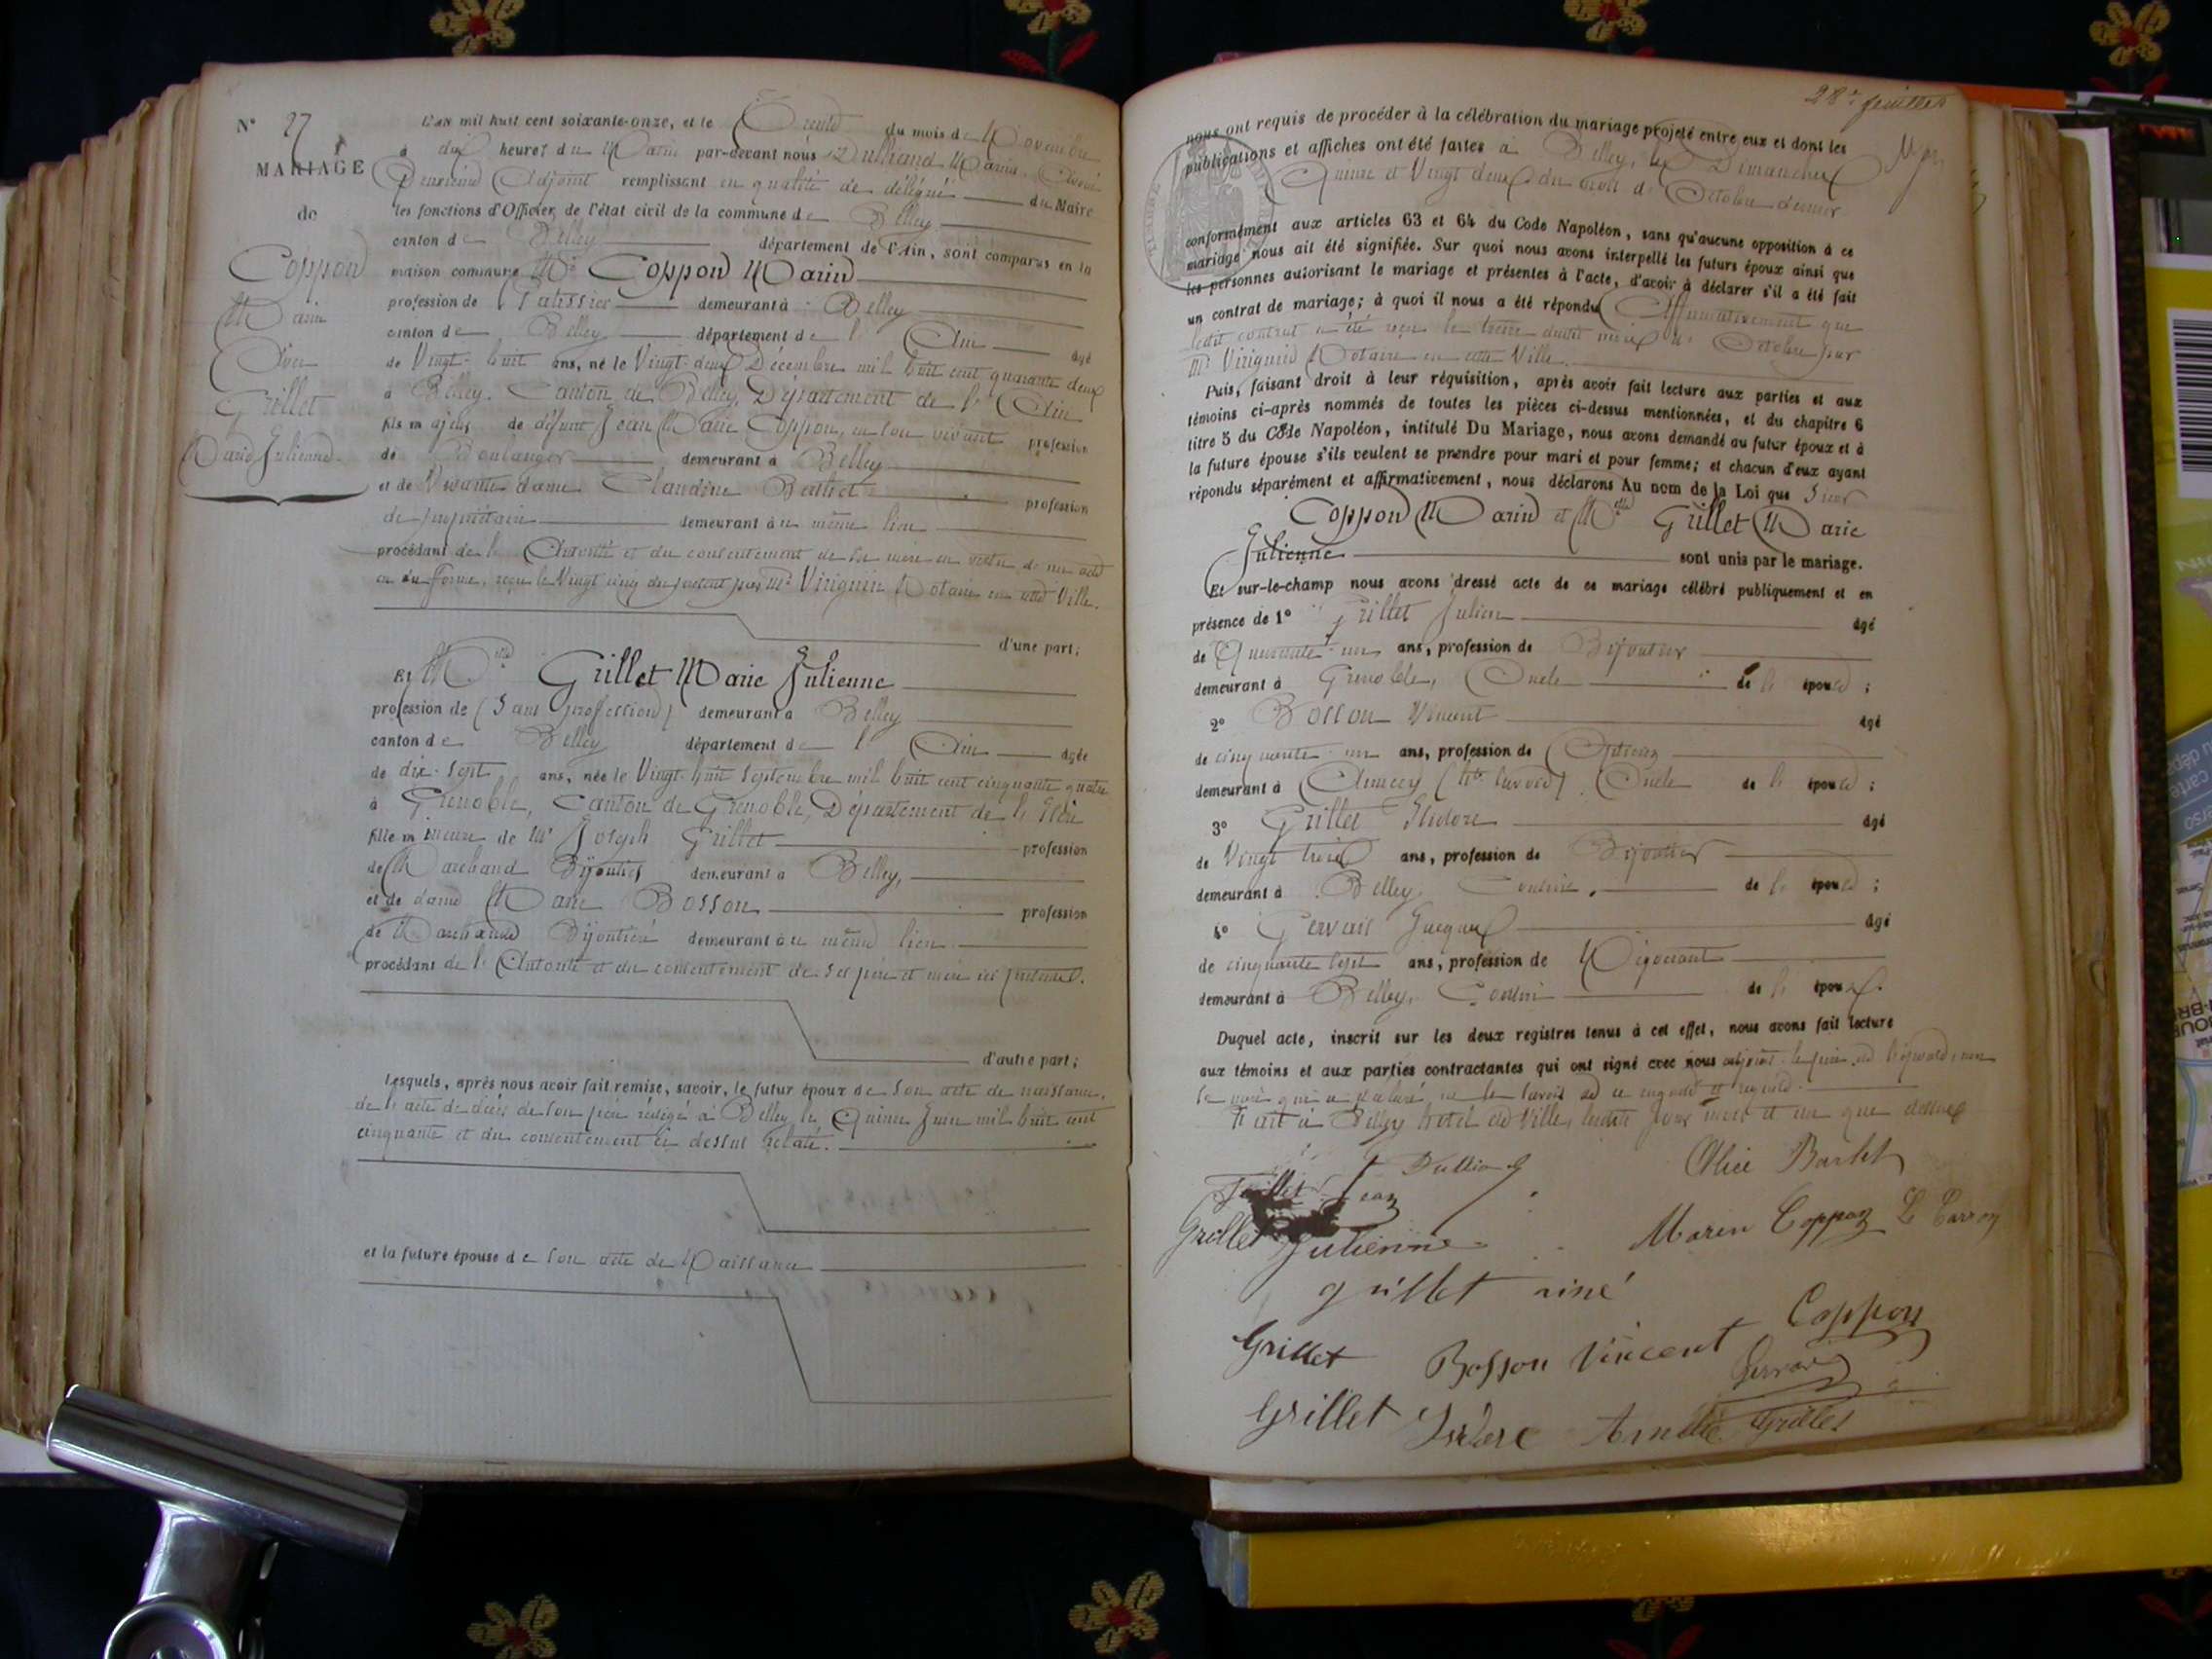 N° 27
MARIAGE
de
Coppon
Marin
Avec
Grillet
Marie Julienne
L'an mil huit cent soixante-onze, et le Trente du mois de Novembre
à dix heures du Matin par-devant nous Dulliand Marin, Avoué
Deuxième Adjoint remplissant en qualité de délégué du Maire
les fonctions d'Officier de l'état civil de la commune de Belley
canton de Belley département de l'Ain, sont comparus en la
maison commune Mr Coppon Marin
profession de Patissier demeurant à Belley
canton de Belley département de l'Ain âgé
de Vingt-huit ans, né le Vingt-deux Décembre mil huit cent quarante deux
à Belley, Canton de Belley, Département de l'Ain
fils majeur de défunt Jean Marie Coppon, en son vivant profession
de Boulanger demeurant à Belley
et de Vivante dame Claudine profession
de propriétaire demeurant au même lieu
procédant de l'Autorité et du consentement de sa mère en vertu de un acte
en due forme, reçu le Vingt cinq du présent par Me Virignin Notaire en cette Ville.
d'une part;
Et Melle Grillet Marie Julienne
profession de (Sans profession) demeurant à Belley
canton de Belley département de l'Ain âgée
de dix-sept ans, née le Vingt-huit Septembre mil huit cent cinquante quatre
à Grenoble, Canton de Grenoble, Département de l'Isère
fille mineure de Mr Joseph Grillet profession
de Marchand Bijoutier demeurant à Belley,
et de dame Marie Bosson profession
de Marchande Bijoutière demeurant au même lieu
procédant de l'Autorité et du consentement de ses père et mère ici présents.
d'autre part;
Lesquels, après nous avoir fait remise, savoir, le futur époux de son acte de naissance,
de l'acte de décès de son père rédigé à Belley le Quinze Juin mil huit cent
cinquante et du consentement ci dessus relaté.
et la future épouse de son acte de Naissance
28e feuillet
nous ont requis de procéder à la célébration du mariage projeté entre eux et dont les
publications et affiches ont été faites à Belley, les Dimanches
Quinze et Vingt deux du mois d'Octobre dernier
conformément aux articles 63 et 64 du Code Napoléon, sans qu'aucune opposition à ce
mariage nous ait été signifiée. Sur quoi nous avons interpellé les futurs époux ainsi que
les personnes autorisant le mariage et présentes à l'acte, d'avoir à déclarer s'il a été fait
un contrat de mariage; à quoi il nous a été répondu Affirmativement que
ledit contrat a été reçu le treize dudit mois d'Octobre par
Me Virignin Notaire en cette Ville.
Puis, faisant droit à leur réquisition, après avoir fait lecture aux parties et aux
témoins ci-après nommés de toutes les pièces ci-dessus mentionnées, et du chapitre 6
titre 5 du Code Napoléon, intitulé Du Mariage, nous avons demandé au futur époux et à
la future épouse s'ils veulent se prendre pour mari et pour femme; et chacun d'eux ayant
répondu séparément et affirmativement, nous déclarons Au nom de la Loi que Sieur
Coppon Marin et Melle Grillet Marie
Julienne sont unis par le mariage.
Et sur-le-champ nous avons dressé acte de ce mariage célébré publiquement et en
présence de 1° Grillet Julien âgé
de Quarante-un ans, profession de Bijoutier
demeurant à Grenoble, Oncle de l'épouse;
2° Bosson Vincent âgé
de cinquante-un ans, profession de Opticien
demeurant à Annecy (Hte Savoie) Oncle de l'épouse;
3° Grillet Isidore âgé
de Vingt trois ans, profession de Bijoutier
demeurant à Belley, Cousin de l'épouse;
4° Gervais Jacques âgé
de cinquante sept ans, profession de Négociant
demeurant à Belley, Cousin de l'époux.
Duquel acte, inscrit sur les deux registres tenus à cet effet, nous avons fait lecture
aux témoins et aux parties contractantes qui ont signé avec nous le père de l'épouse, non
la mère qui a déclaré ne le savoir de ce enquise et requise.
Fait à Belley hotel de Ville, lesdits jour mois et an que dessus
Dulliand
Alice
Grillet Jean
Grillet Julienne
Marin Coppon
grillet ainé
Coppon
Grillet Bosson Vincent
Gervais
Grillet Isidore Amélie Grillet